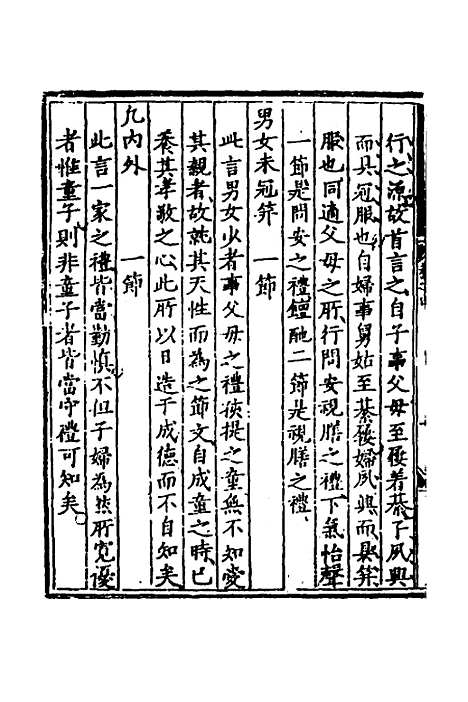 行之源故首言之自子事父母至偪着綦子夙興
而具冠服也自婦事舅姑至綦偪婦夙興而具笄
服也同適父母之所行問安視膳之禮下氣怡聲
一節是問安之禮饘酏二節是視膳之禮
男女未冠笄 一節
此言男女少者事父母之禮孩提之童無不知愛
其親者故就其天性而為之節文自成童之時已
養其孝敬之心此所以日造于成德而不自知矣
凡内外 一節
此言一家之禮皆當勤慎不但子婦為然所寬優
者惟童子則非童子者皆當守禮可知矣